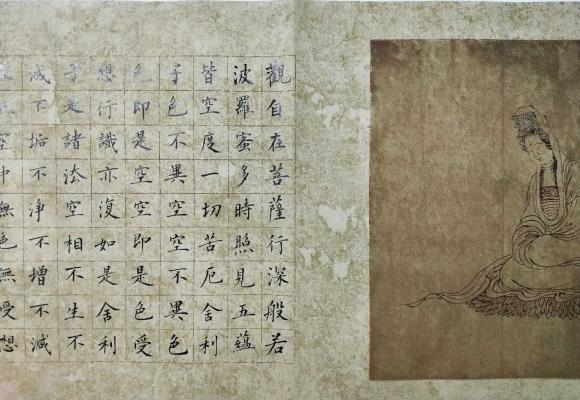 觀自在菩薩行深般若
波羅蜜多時照見五蘊
皆空度一切苦厄舍利
子色不異空空不異色
色即是空空即是色受
想行識亦復如是舍利
子是諸法空相不生不
滅不垢不淨不增不減
空中無色無受想